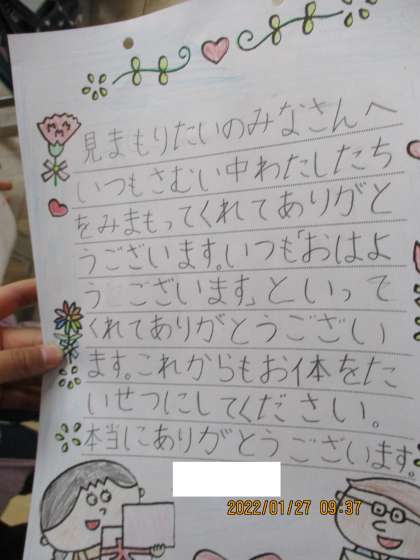 見まもりたいのみなさんへ
いつもさむい中わたしたち
をみまもってくれてありがと
うございます。いつも「おはよ
う ございます」といって
くれてありがとうござい
ます。これからもお体をた
いせつにしてください。
本当にありがとうございます。
2022/01/27 09:37